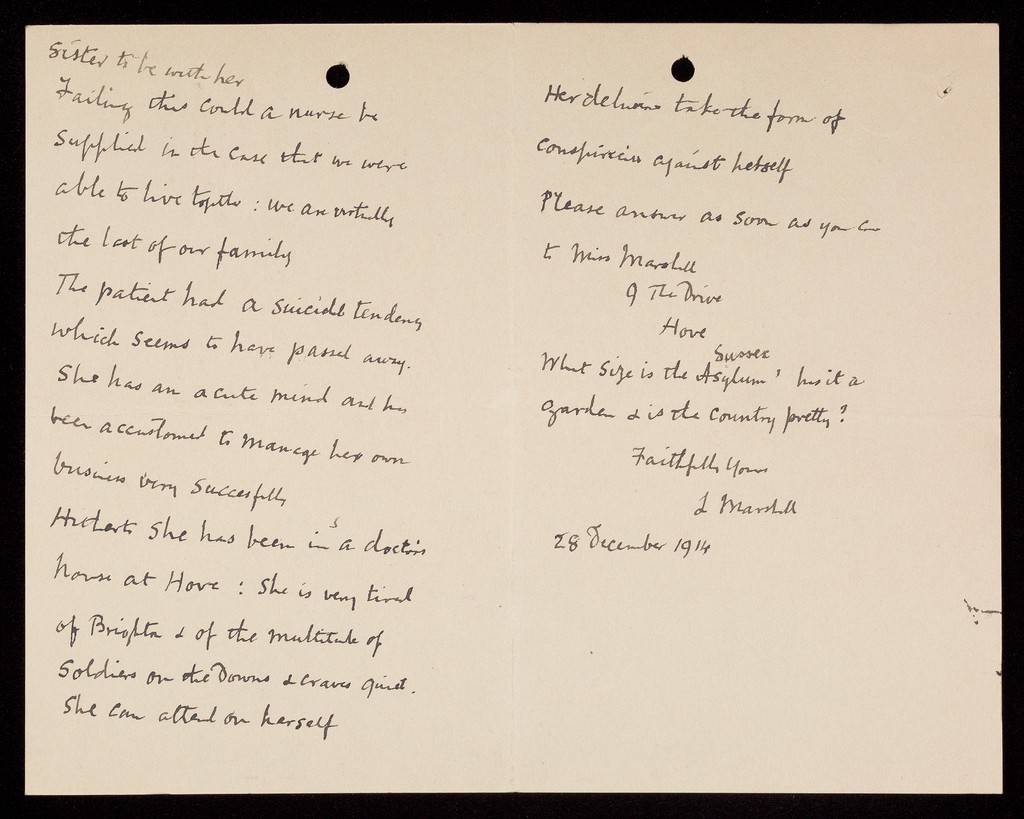 Sister to be with her
Failing this could a nurse be
supplied in the case that we were
able to live together : we are virtually
the last of our family
The patient had a suicidal tendency
which seems to have passed away.
She has an acute mind and has
been accustomed to manage her own
business very successfully
Hitherto she has been in a doctor's
house at Hove : She is very tired
of Brighton & of the multitude of
Soldiers on the Downs & craves quiet.
She can attend on herself
Her delusions take the form of
conspiracies against herself
Please answer as soon as you can
to Miss Marshall
9 The Drive
Hove
Sussex
What size is the Asylum? has it a
garden & is the country pretty?
Faithfully Yours
L Marshall
28 December 1914